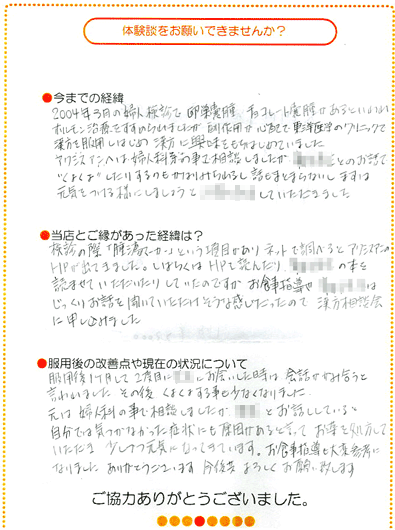 体験談をお願いできませんか？
●今までの経緯
2004年3月の婦人検診で 卵巣嚢腫、チョコレート嚢腫があるといわれ
ホルモン治療をすすめられましたが 副作用が心配で 東洋医学のクリニックで
漢方を服用しはじめ 漢方に興味をもちはじめていました
へは婦人科系の事で相談しましたが とのお話で
"くよくよ"したりするのもかなりみられるし 話もまとまらないし まずは
元気をつける様にしましょうと していただきました
●当店とご縁があった経緯は？
検診の際「腫瘍マーカー」という項目があり ネットで調べると
HPが出てきました。しばらくは HPを読んだり、 の本を
読ませていただいたりしていたのですが お食事指導や は
じっくりお話を聞いていただけそうな感じだったので 漢方相談会
に申し込みました
●服用後の改善点や現在の状況について
服用後1ヶ月して 2度目に にお会いした時は 会話がかみ合うと
言われました その後 くよくよする事も少なくなりました
元は 婦人科の事で相談しましたが とお話ししていると
自分では気づかなかった症状にも原因があると言って お薬を処方して
いただき 少しずつ元気になってきています。お食事指導も大変参考に
なりました ありがとうございます 今後共 よろしくお願い致します
ご協力ありがとうございました。